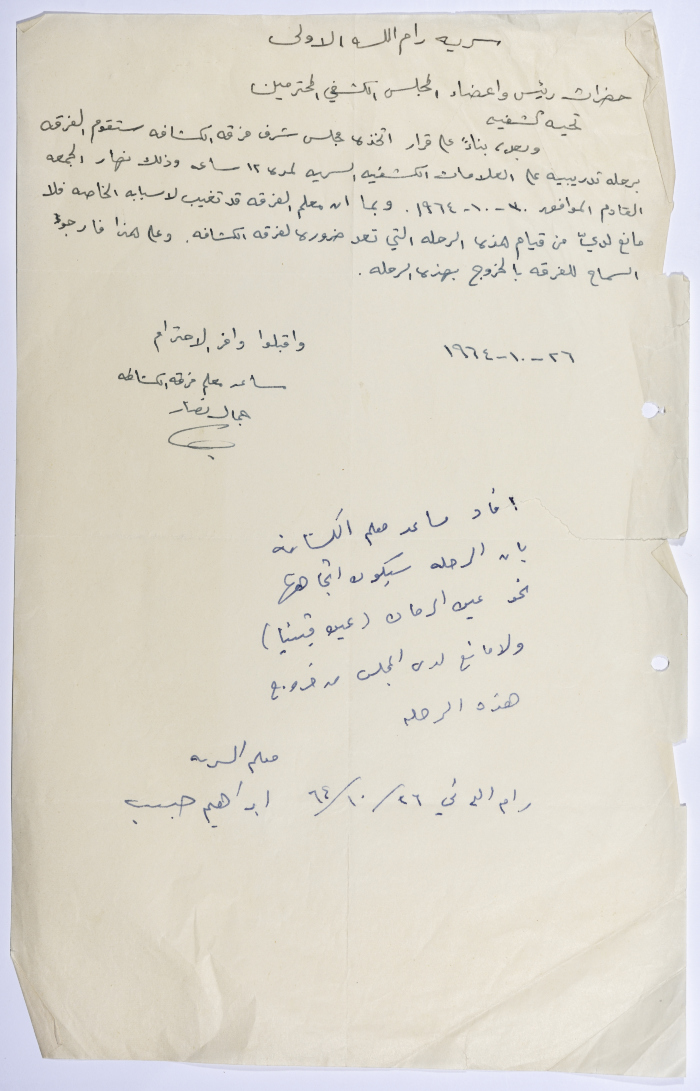 سريه رام الله الاولى
حضرات رئيس واعضاء المجلس الكشفي المحترمين
تحيه كشفيه
وبعد، بناءً على قرار اتخذه مجلس شرف فرقه الكشافه ستقوم الفرقه
برحله تدريبيه على العلامات الكشفيه السريه لمده ١٢ ساعه وذلك نهار الجمعه
القادم الموافق ٣٠-١٠-١٩٦٤. وبما ان معلم الفرقه قد تغيب لاسبابه الخاصه فلا
مانع لديّ من قيام هذه الرحله التي تعد ضروريه لفرقه الكشافه. وعلى هذا فارجو
السماح للفرقه بالخروج بهذه الرحله.
واقبلوا وافر الاحترام
٢٦-١٠-١٩٦٤
مساعد معلم فرقه الكشافه
جمال نصار
افاد مساعد معلم الكشافه
بان الرحله سيكون اتجاهها
نحو عين الرمان (عين قينيا)
ولا مانع لدى المجلس من خروج
هذه الرحله
معلم السريه
رام الله في ٢٦/١٠/٦٤ ابراهيم حبيب